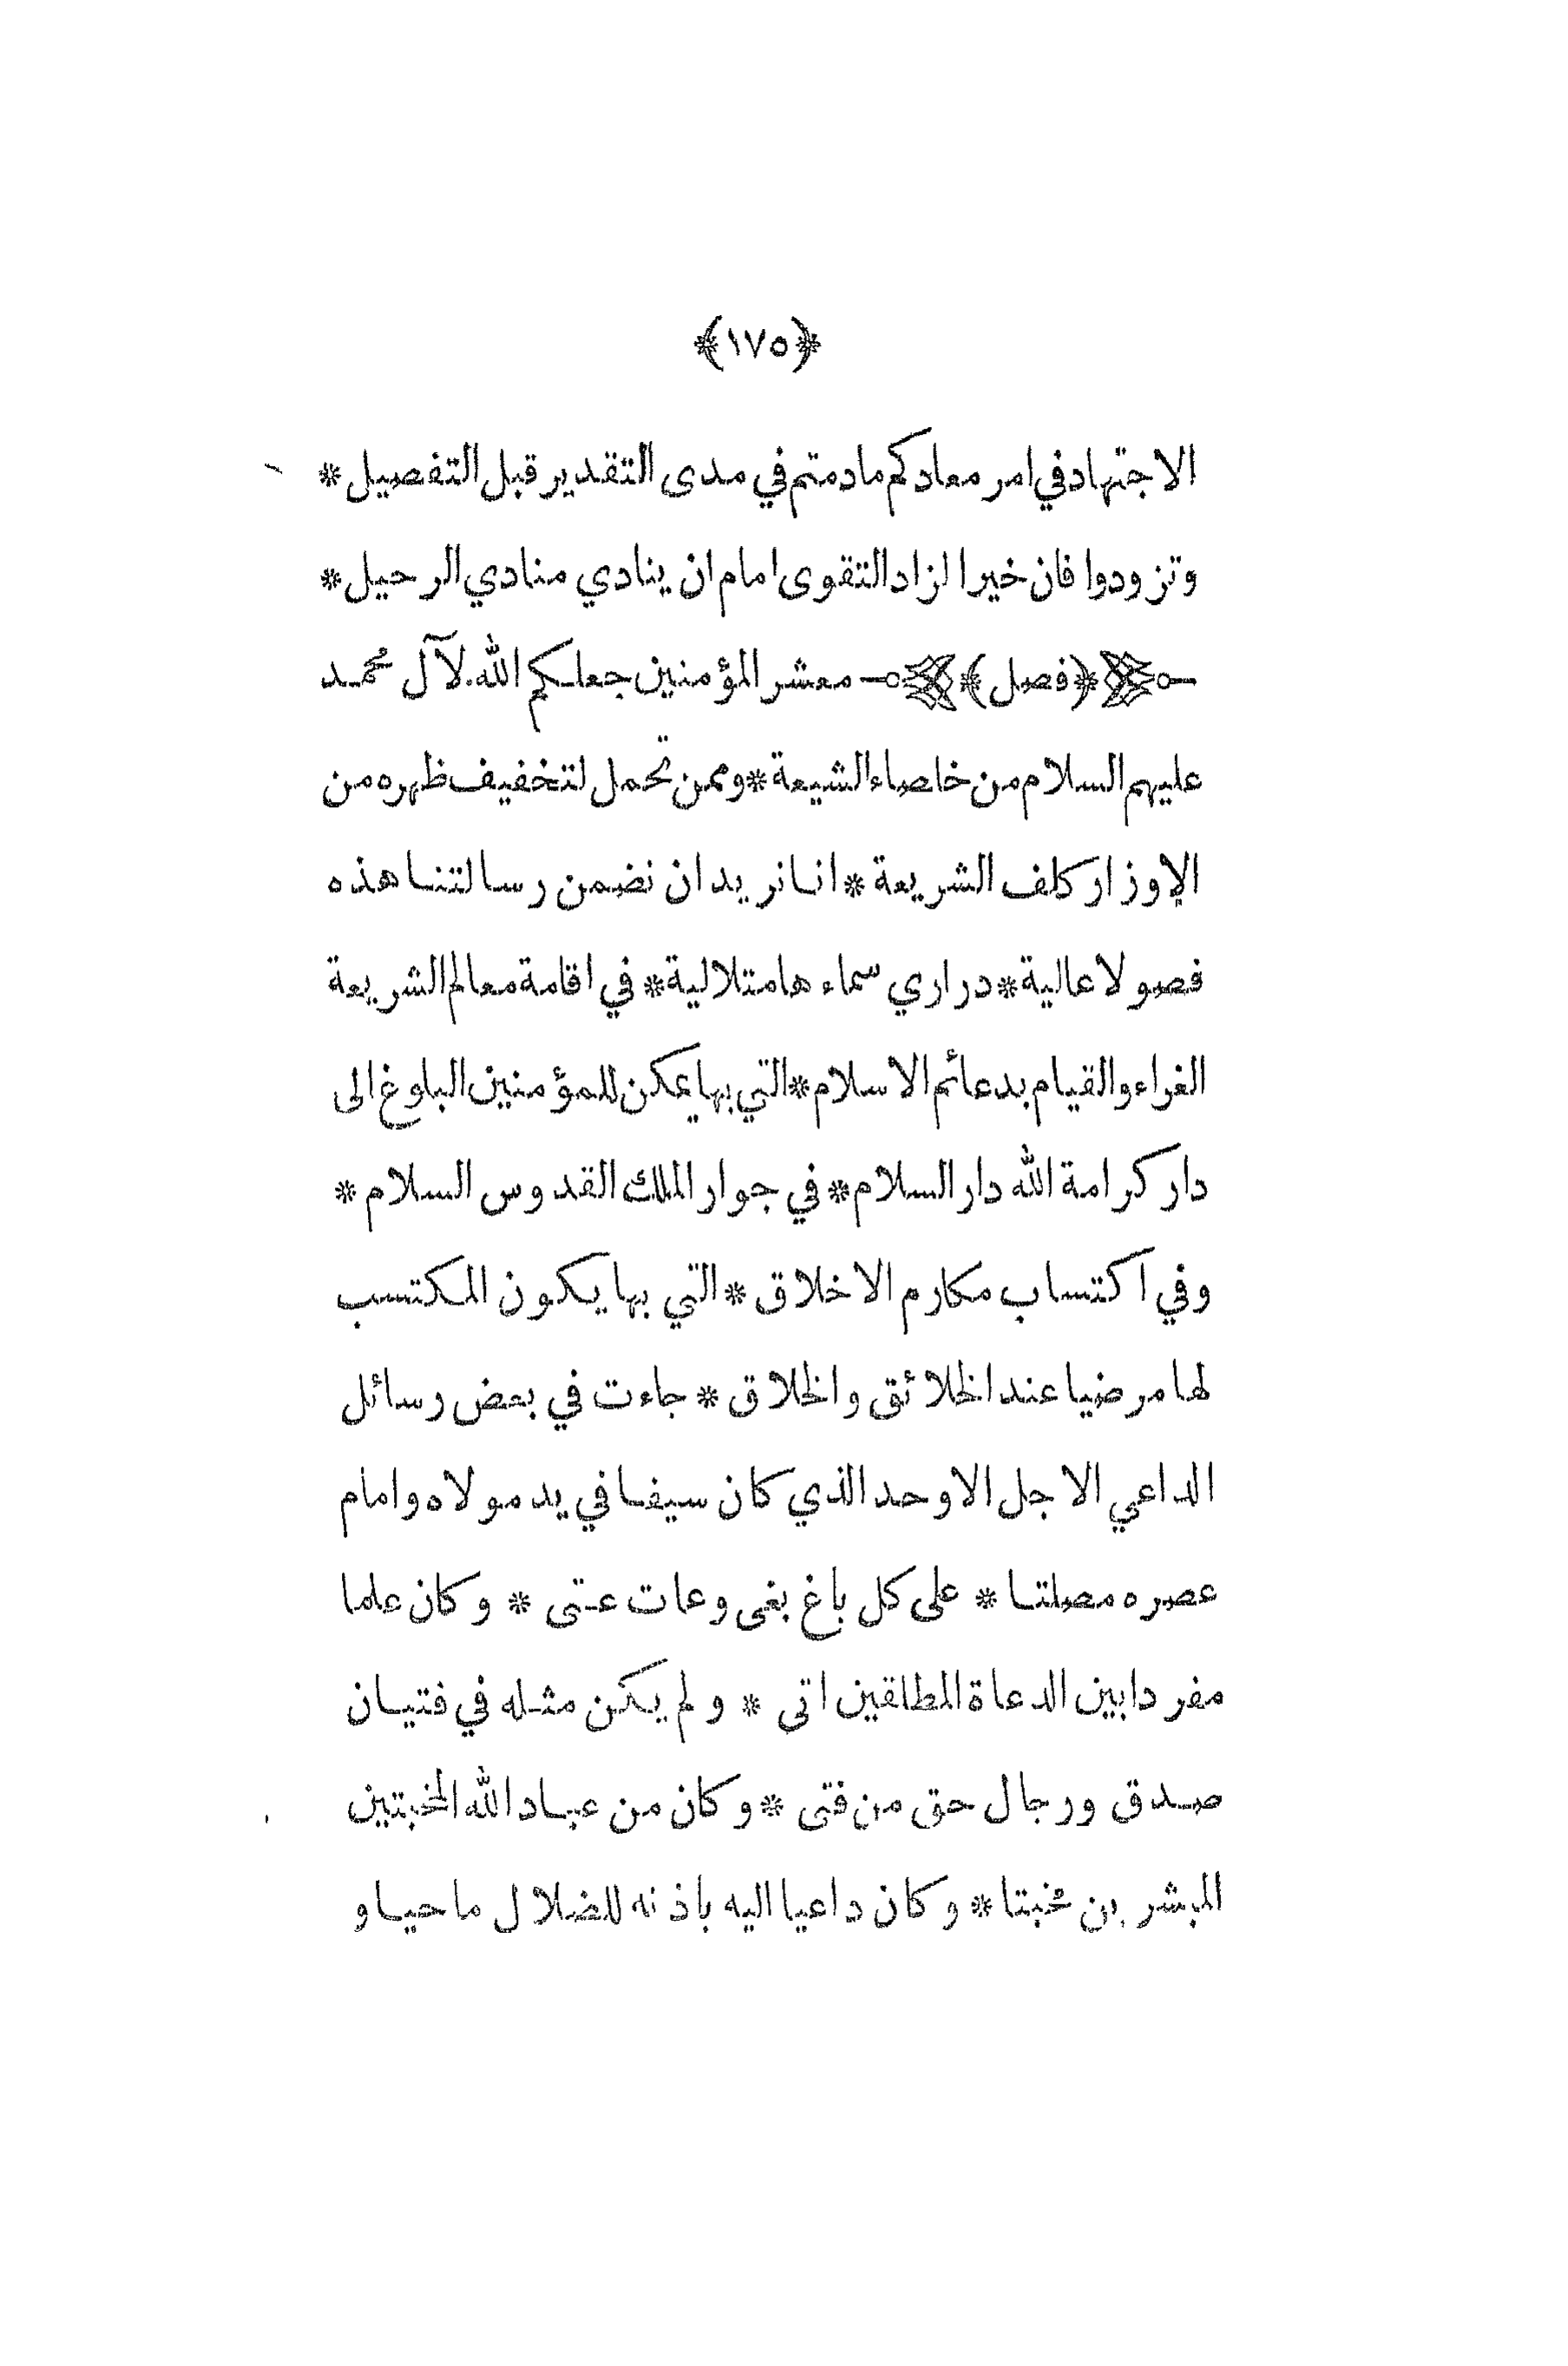 ﴿١٧٥﴾
الاجتهاد في امر معادكم مادمتم في مدى التقدير قبل التفصيل *
وتزودوا فان خير الزاد التقوى امام ان ينادي منادي الرحيل *
﴿فصل﴾ معشر المؤمنين جعلكم الله لآل محمد
عليهم السلام من خلصاء الشيعة * وممن تحمل لتخفيف ظهره من
الاوزار كلف الشريعة * اننا نريد ان نضمن رسالتنا هذه
فصولا عالية * دراري سماءها متلالية * في اقامة معالم الشريعة
الغراء والقيام بدعائم الاسلام * التي بها يمكن للمؤمنين البلوغ الى
دار كرامة الله دار السلام * في جوار الملك القدوس السلام *
وفي اكتساب مكارم الاخلاق * التي بها يكون المكتسب
لها مرضيا عند الخلائق والخلاق * جاءت في بعض رسائل
الداعي الاجل الاوحد الذي كان سيفا في يد مولاه وامام
عصره مصلتا * على كل باغ بغى وعات عتى * وكان علما
مفردا بين الدعاة المطلقين اتى * ولم يكن مثله في فتيان
صدق ورجال حق من فتى * وكان من عباد الله المخبتين
المبشرين مخبتا * وكان داعيا اليه باذنه للضلال ماحيا و